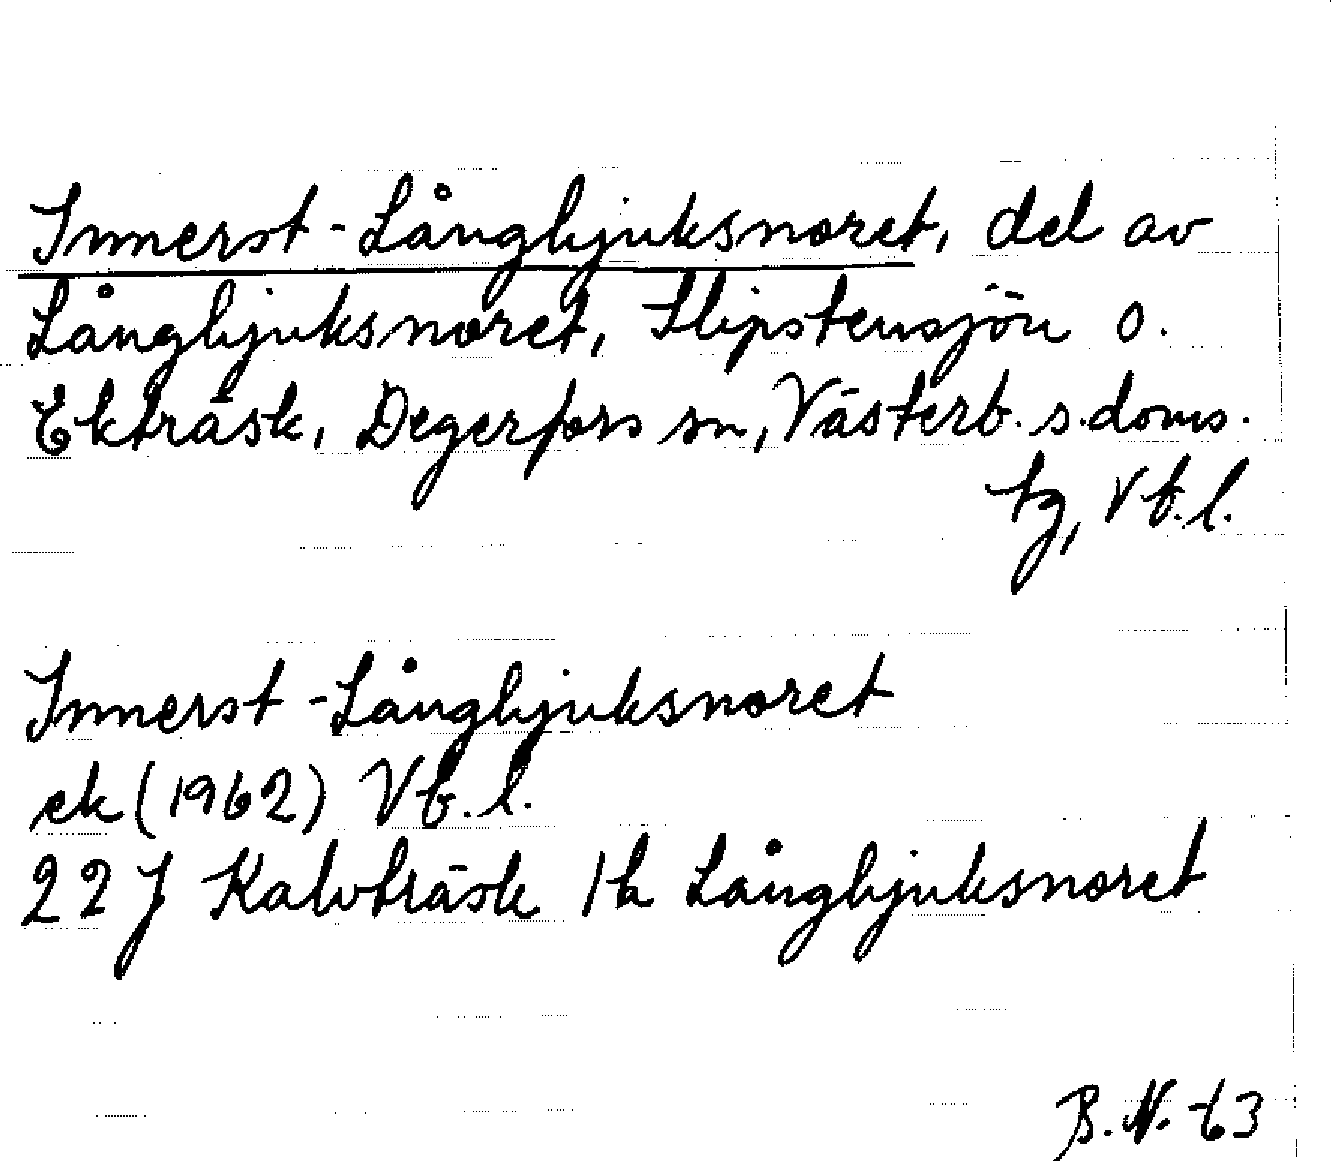 Innerst-Långhjuksnoret, del av
Långhjuksnoret, Slipstensjön o.
Ekträsk, Degerfors sn, Västerb. s. doms.
tg, Vb. l.
Innerst-Långhjuksnoret
ek (1962) Vb. l.
22 J Kalvträsk 1h Långhjuksnoret
B. N. 63